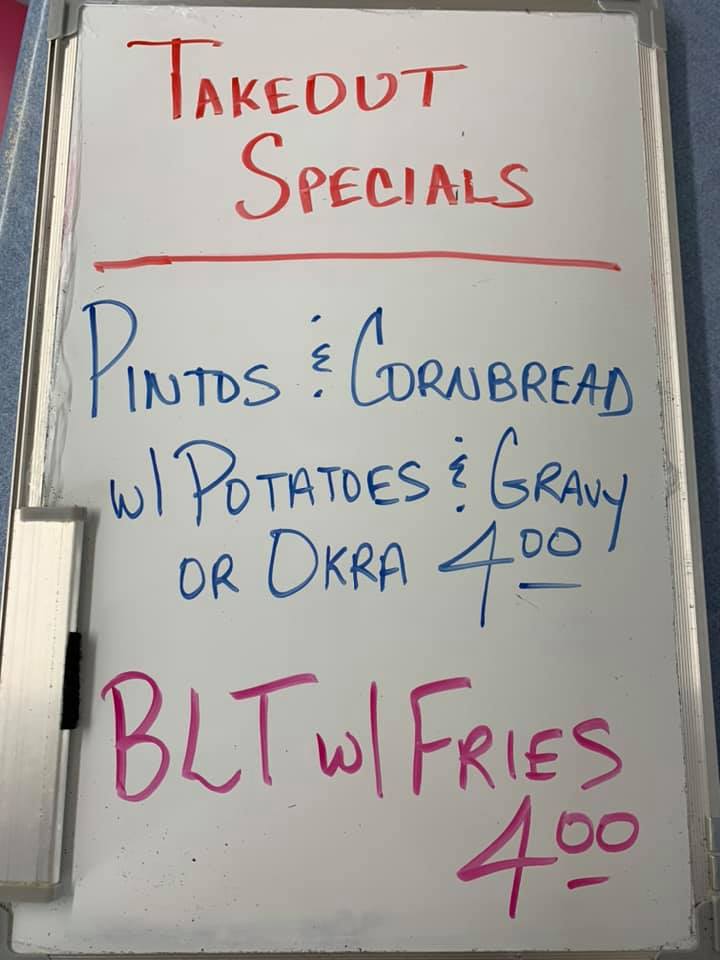 TAKEOUT
SPECIALS
PINTOS & CORNBREAD
W/ POTATOES & GRAVY
OR OKRA 4.00
BLT W/ FRIES
4.00